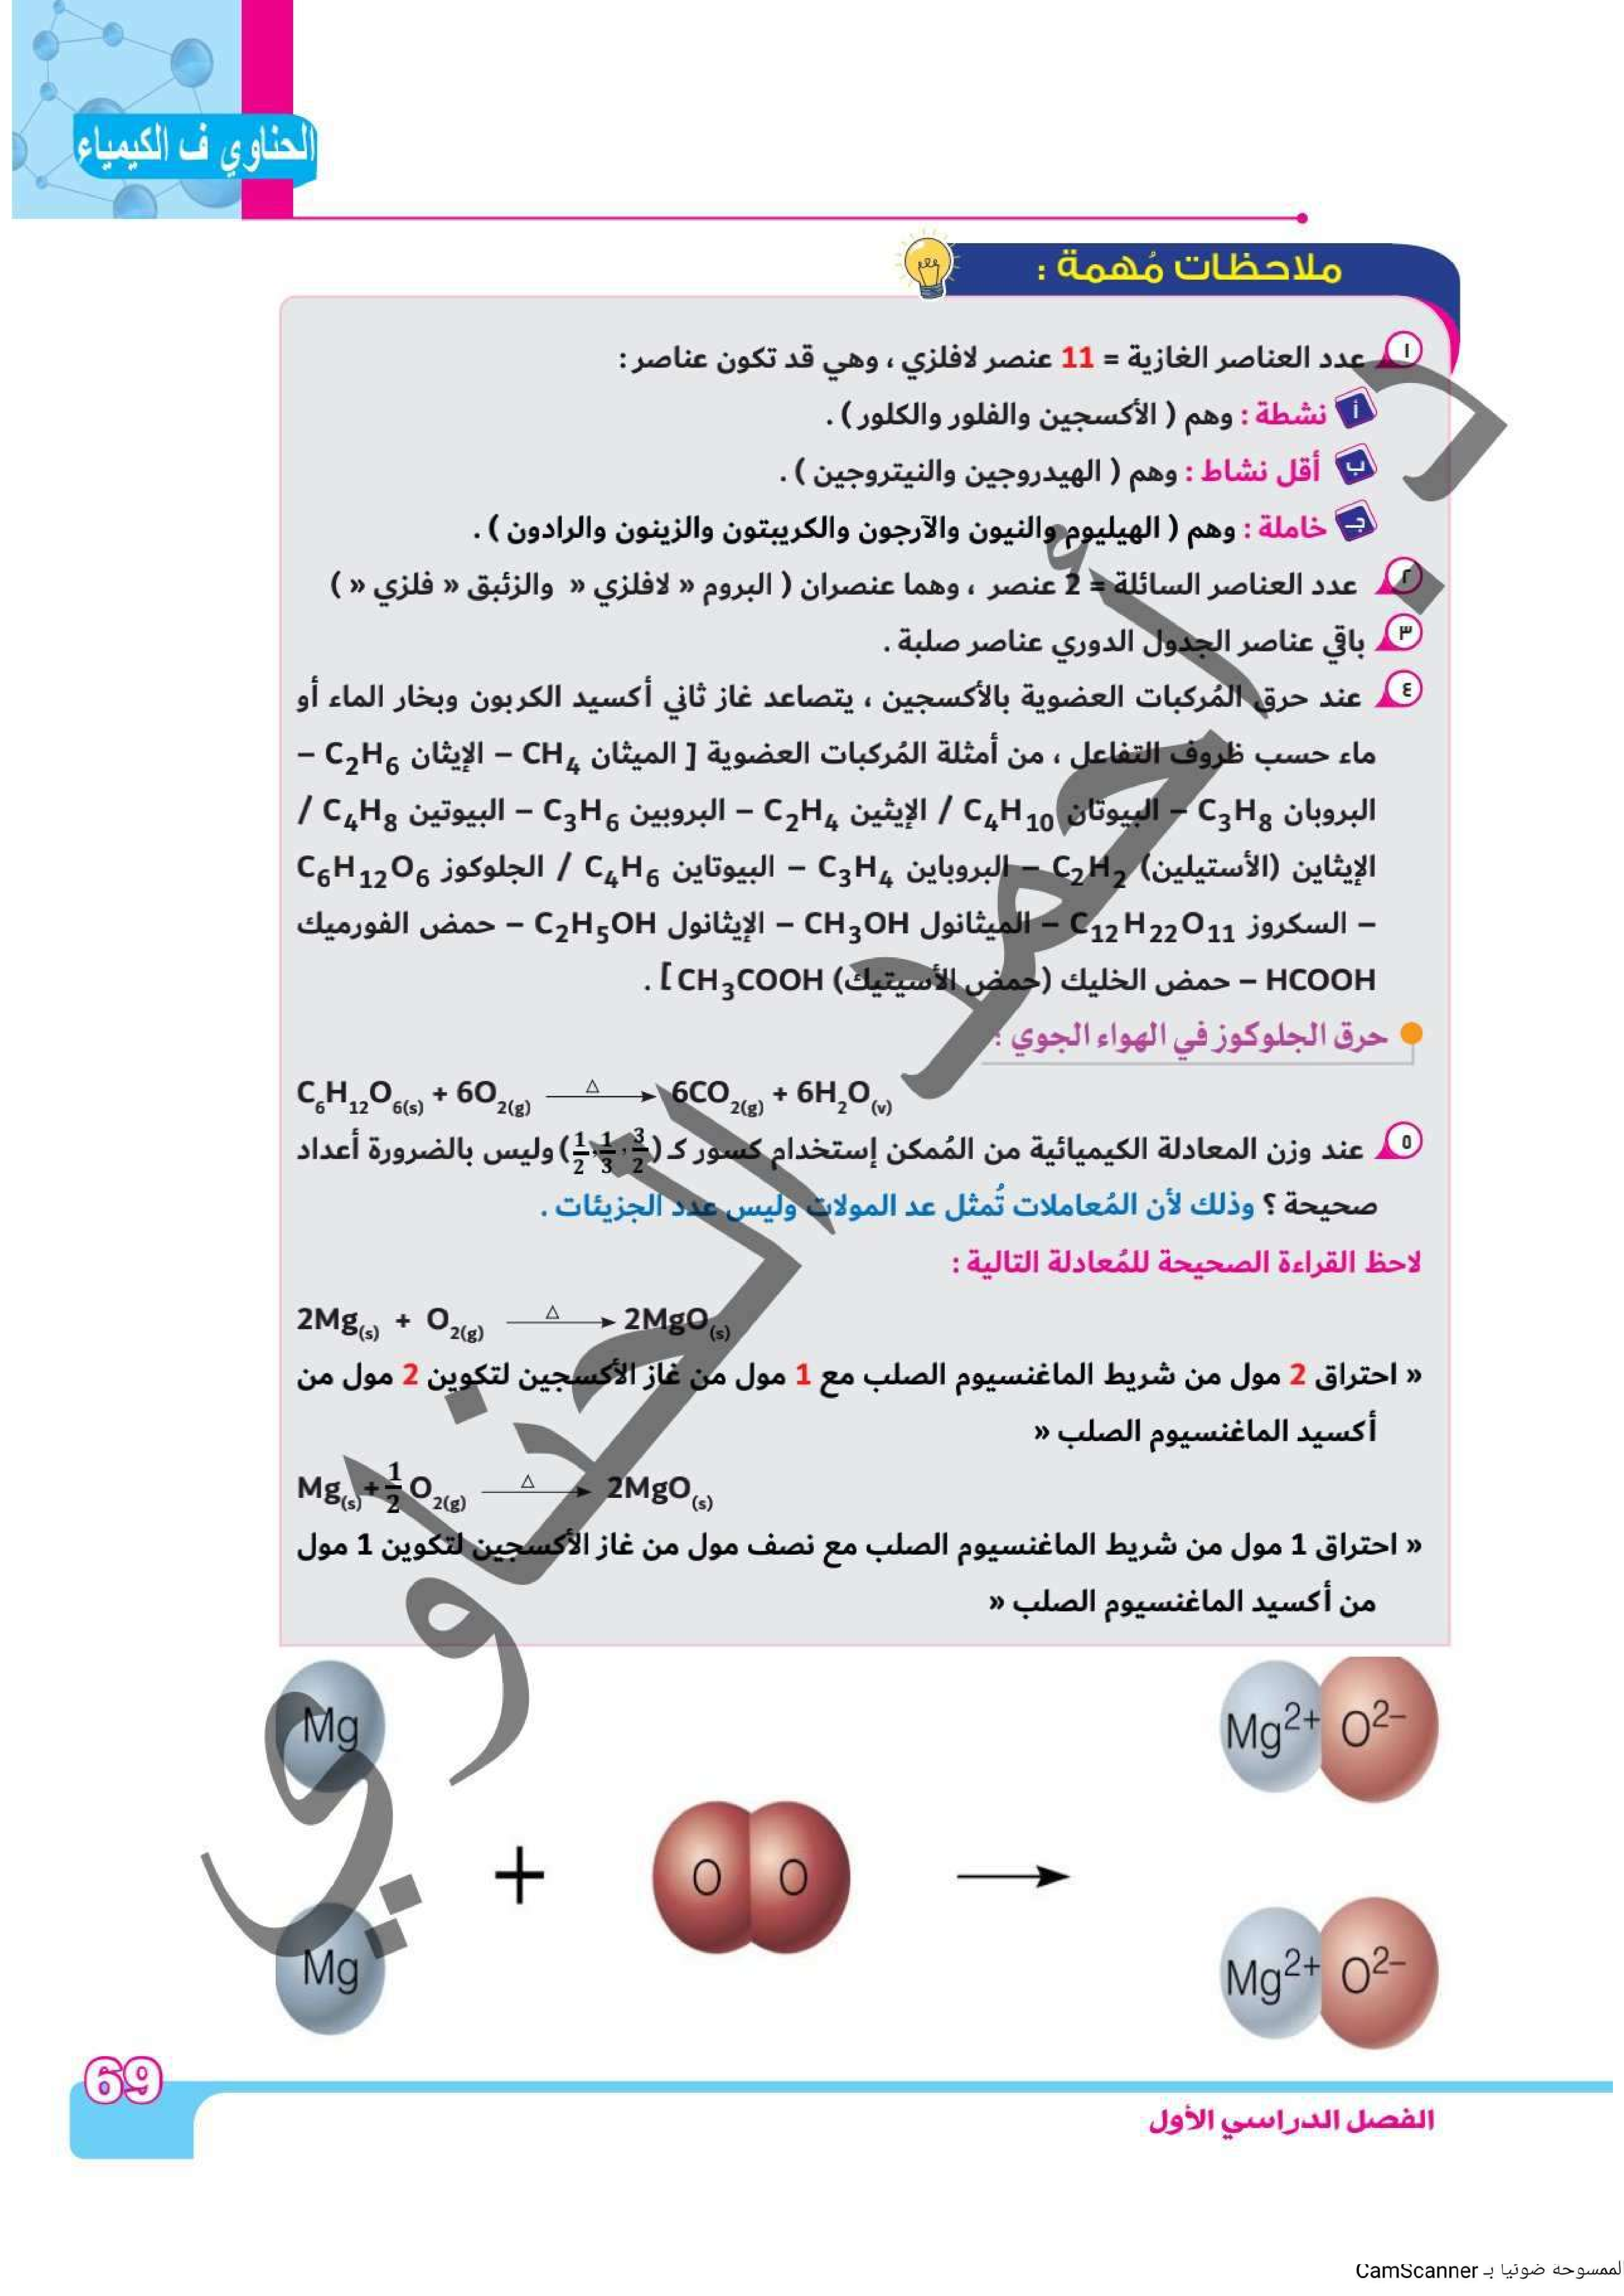 الحناوي ف الكيمياء
ملاحظات مُهمة :
١ عدد العناصر الغازية = 11 عنصر لافلزي ، وهي قد تكون عناصر :
أ نشطة : وهم ( الأكسجين والفلور والكلور ) .
ب أقل نشاط : وهم ( الهيدروجين والنيتروجين ) .
جـ خاملة : وهم ( الهيليوم والنيون والآرجون والكريبتون والزينون والرادون ) .
٢ عدد العناصر السائلة = 2 عنصر ، وهما عنصران ( البروم « لافلزي » والزئبق « فلزي » )
٣ باقي عناصر الجدول الدوري عناصر صلبة .
٤ عند حرق المُركبات العضوية بالأكسجين ، يتصاعد غاز ثاني أكسيد الكربون وبخار الماء أو
ماء حسب ظروف التفاعل ، من أمثلة المُركبات العضوية [ الميثان CH₄ – الإيثان C₂H₆ –
البروبان C₃H₈ – البيوتان C₄H₁₀ / الإيثين C₂H₄ – البروبين C₃H₆ – البيوتين C₄H₈ /
الإيثاين (الأستيلين) C₂H₂ – البروباين C₃H₄ – البيوتاين C₄H₆ / الجلوكوز C₆H₁₂O₆
– السكروز C₁₂H₂₂O₁₁ – الميثانول CH₃OH – الإيثانول C₂H₅OH – حمض الفورميك
HCOOH – حمض الخليك (حمض الأسيتيك) CH₃COOH ] .
حرق الجلوكوز في الهواء الجوي :
C₆H₁₂O₆(s) + 6O₂(g) —△→ 6CO₂(g) + 6H₂O(v)
٥ عند وزن المعادلة الكيميائية من المُمكن إستخدام كسور كـ (3/2 ، 1/3 ، 1/2) وليس بالضرورة أعداد
صحيحة ؟ وذلك لأن المُعاملات تُمثل عد المولات وليس عدد الجزيئات .
لاحظ القراءة الصحيحة للمُعادلة التالية :
2Mg(s) + O₂(g) —△→ 2MgO(s)
« احتراق 2 مول من شريط الماغنسيوم الصلب مع 1 مول من غاز الأكسجين لتكوين 2 مول من
أكسيد الماغنسيوم الصلب »
Mg(s) + 1/2 O₂(g) —△→ 2MgO(s)
« احتراق 1 مول من شريط الماغنسيوم الصلب مع نصف مول من غاز الأكسجين لتكوين 1 مول
من أكسيد الماغنسيوم الصلب »
د. أحمد الحناوي
Mg Mg²⁺ O²⁻
+ O O →
Mg Mg²⁺ O²⁻
69
الفصل الدراسي الأول
لممسوحة ضوئيا بـ CamScanner